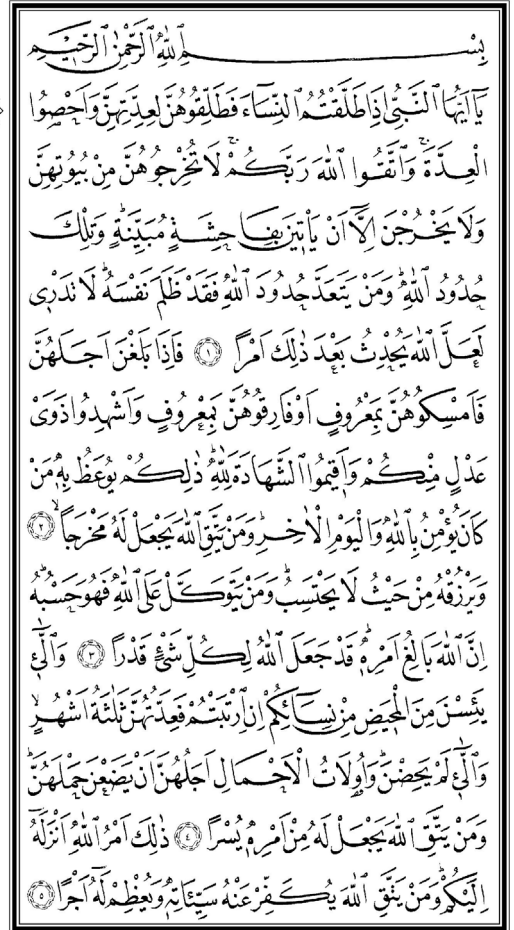 بِسْمِ اللهِ الرَّحْمٰنِ الرَّحِيمِ
يَٓا اَيُّهَا النَّبِيُّ اِذَا طَلَّقْتُمُ النِّسَٓاءَ فَطَلِّقُوهُنَّ لِعِدَّتِهِنَّ وَاَحْصُوا
الْعِدَّةَۚ وَاتَّقُوا اللهَ رَبَّكُمْۚ لَا تُخْرِجُوهُنَّ مِنْ بُيُوتِهِنَّ
وَلَا يَخْرُجْنَ اِلَّٓا اَنْ يَأْت۪ينَ بِفَاحِشَةٍ مُبَيِّنَةٍۜ وَتِلْكَ
حُدُودُ اللهِۜ وَمَنْ يَتَعَدَّ حُدُودَ اللهِ فَقَدْ ظَلَمَ نَفْسَهُۜ لَا تَدْر۪ي
لَعَلَّ اللهَ يُحْدِثُ بَعْدَ ذٰلِكَ اَمْرًا ﴿١﴾ فَاِذَا بَلَغْنَ اَجَلَهُنَّ
فَاَمْسِكُوهُنَّ بِمَعْرُوفٍ اَوْ فَارِقُوهُنَّ بِمَعْرُوفٍ وَاَشْهِدُوا ذَوَيْ
عَدْلٍ مِنْكُمْ وَاَق۪يمُوا الشَّهَادَةَ لِلّٰهِۜ ذٰلِكُمْ يُوعَظُ بِه۪ مَنْ
كَانَ يُؤْمِنُ بِاللهِ وَالْيَوْمِ الْاٰخِرِۜ وَمَنْ يَتَّقِ اللهَ يَجْعَلْ لَهُ مَخْرَجًاۙ ﴿٢﴾
وَيَرْزُقْهُ مِنْ حَيْثُ لَا يَحْتَسِبُۜ وَمَنْ يَتَوَكَّلْ عَلَى اللهِ فَهُوَ حَسْبُهُۜ
اِنَّ اللهَ بَالِغُ اَمْرِه۪ۜ قَدْ جَعَلَ اللهُ لِكُلِّ شَيْءٍ قَدْرًا ﴿٣﴾ وَالّٰٓئ۪
يَئِسْنَ مِنَ الْمَح۪يضِ مِنْ نِسَٓائِكُمْ اِنِ ارْتَبْتُمْ فَعِدَّتُهُنَّ ثَلٰثَةُ اَشْهُرٍۙ
وَالّٰٓئ۪ لَمْ يَحِضْنَۜ وَاُو۬لَاتُ الْاَحْمَالِ اَجَلُهُنَّ اَنْ يَضَعْنَ حَمْلَهُنَّۜ
وَمَنْ يَتَّقِ اللهَ يَجْعَلْ لَهُ مِنْ اَمْرِه۪ يُسْرًا ﴿٤﴾ ذٰلِكَ اَمْرُ اللهِ اَنْزَلَهُٓ
اِلَيْكُمْۜ وَمَنْ يَتَّقِ اللهَ يُكَفِّرْ عَنْهُ سَيِّـَٔاتِه۪ وَيُعْظِمْ لَهُٓ اَجْرًا ﴿٥﴾